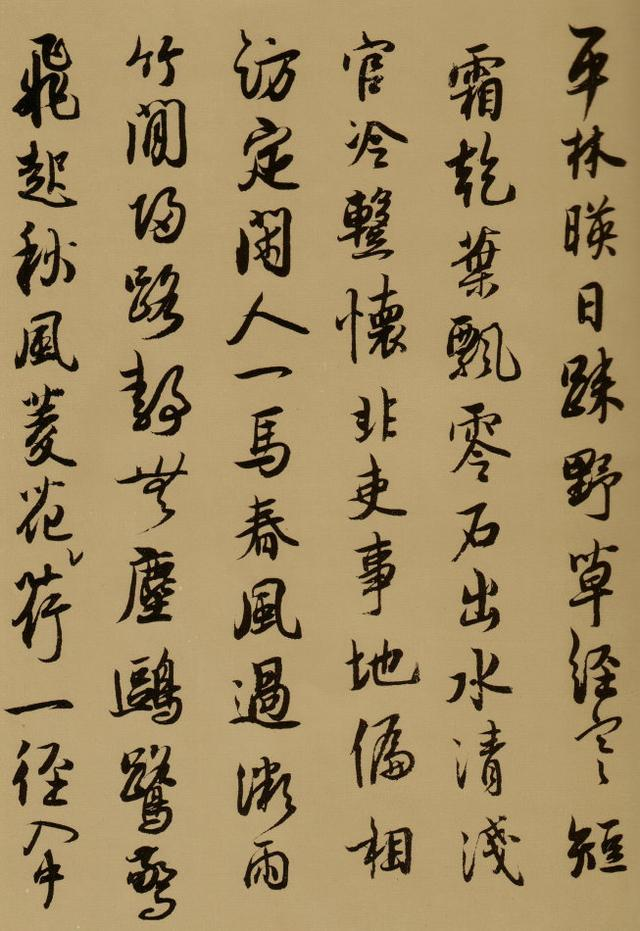 平林暎日踈野草經寒短
霜乾葉飄零石出水清淺
官冷懷非吏事地偏相
訪定閑人一馬春風過微雨
竹閒歸路靜無塵鷗鷺驚
飛起秋風菱花荷一徑入中